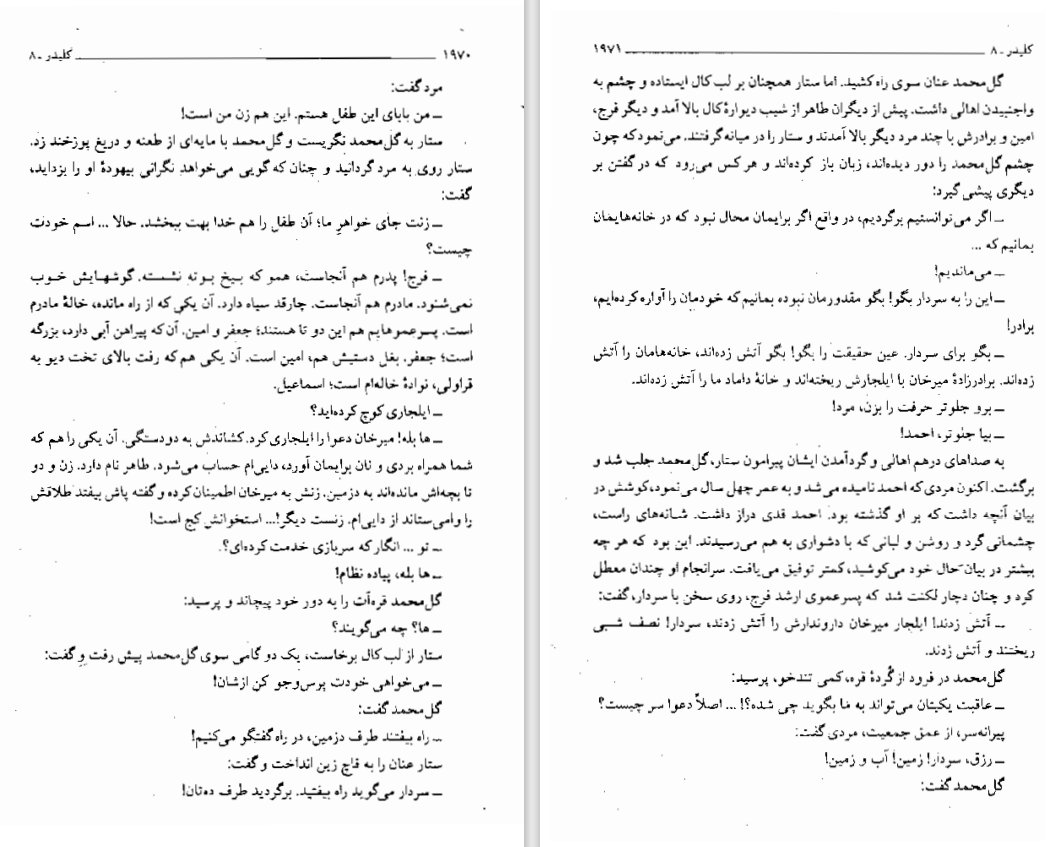 ۱۹۷۰ کلیدر ـ ۸
مرد گفت:
ـ من بابای این طفل هستم. این هم زن من است!
ستار به گل‌محمد نگریست و گل‌محمد با مایه‌ای از طعنه و دریغ پوزخند زد.
ستار روی به مرد گردانید و چنان که گویی می‌خواهد نگرانی بیهودهٔ او را بزداید،
گفت:
ـ زنت جای خواهرِ ما؛ آن طفل را هم خدا بهت ببخشد. حالا ... اسم خودت
چیست؟
ـ فرج! پدرم هم آنجاست، همو که بیخ بوته نشسته. گوشهایش خوب
نمی‌شنود. مادرم هم آنجاست. چارقد سیاه دارد. آن یکی که از راه مانده، خالهٔ مادرم
است. پسرعموهایم هم این دو تا هستند؛ جعفر و امین. آن‌که پیراهن آبی دارد، بزرگه
است؛ جعفر. بغل دستیش هم، امین است. آن یکی هم که رفت بالای تخت دیو به
قراولی، نوادهٔ خاله‌ام است؛ اسماعیل.
ـ ایلجاری کوچ کرده‌اید؟
ـ ها بله! میرخان دعوا را ایلجاری کرد. کشاندش به دودستگی. آن یکی را هم که
شما همراه بردی و نان برایمان آورد، دایی‌ام حساب می‌شود. طاهر نام دارد. زن و دو
تا بچه‌اش مانده‌اند به دزمین. زنش به میرخان اطمینان کرده و گفته پاش بیفتد طلاقش
را وامی‌ستاند از دایی‌ام. زنست دیگر!... استخوانش کج است!
ـ تو ... انگار که سربازی خدمت کرده‌ای؟
ـ ها بله، پیاده نظام!
گل‌محمد قره‌آت را به دور خود پیچاند و پرسید:
ـ ها؟ چه می‌گویند؟
ستار از لب کال برخاست، یک دو گامی سوی گل‌محمد پیش رفت و گفت:
ـ می‌خواهی خودت پرس‌وجو کن ازشان!
گل‌محمد گفت:
ـ راه بیفتند طرف دزمین، در راه گفتگو می‌کنیم!
ستار عنان را به قاچ زین انداخت و گفت:
ـ سردار می‌گوید راه بیفتید. برگردید طرف ده‌تان!
کلیدر ـ ۸ ۱۹۷۱
گل‌محمد عنان سوی راه کشید. اما ستار همچنان بر لب کال ایستاده و چشم به
واجنبیدن اهالی داشت. پیش از دیگران طاهر از شیب دیوارهٔ کال بالا آمد و دیگر فرج،
امین و برادرش با چند مرد دیگر بالا آمدند و ستار را در میانه گرفتند. می‌نمود که چون
چشم گل‌محمد را دور دیده‌اند، زبان باز کرده‌اند و هر کس می‌رود که در گفتن بر
دیگری پیشی گیرد:
ـ اگر می‌توانستیم برگردیم، در واقع اگر برایمان محال نبود که در خانه‌هایمان
بمانیم که ...
ـ می‌ماندیم!
ـ این را به سردار بگو! بگو مقدورمان نبوده بمانیم که خودمان را آواره کرده‌ایم،
برادر!
ـ بگو برای سردار. عین حقیقت را بگو! بگو آتش زده‌اند، خانه‌هامان را آتش
زده‌اند. برادرزادهٔ میرخان با ایلجارش ریخته‌اند و خانهٔ داماد ما را آتش زده‌اند.
ـ برو جلوتر حرفت را بزن، مرد!
ـ بیا جلوتر، احمد!
به صداهای درهم اهالی و گردآمدن ایشان پیرامون ستار، گل‌محمد جلب شد و
برگشت. اکنون مردی که احمد نامیده می‌شد و به عمر چهل سال می‌نمود، کوشش در
بیان آنچه داشت که بر او گذشته بود. احمد قدی دراز داشت. شانه‌های راست،
چشمانی گرد و روشن و لبانی که با دشواری به هم می‌رسیدند. این بود که هر چه
بیشتر در بیان حال خود می‌کوشید، کمتر توفیق می‌یافت. سرانجام او چندان معطل
کرد و چنان دچار لکنت شد که پسرعموی ارشد فرج، روی سخن با سردار، گفت:
ـ آتش زدند! ایلجار میرخان داروندارش را آتش زدند، سردار! نصف شبی
ریختند و آتش زدند.
گل‌محمد در فرود از گُردهٔ قره، کمی تندخو، پرسید:
ـ عاقبت یکیتان می‌تواند به ما بگوید چی شده؟! ... اصلاً دعوا سر چیست؟
پیرانه‌سر، از عمق جمعیت، مردی گفت:
ـ رزق، سردار! زمین! آب و زمین!
گل‌محمد گفت: